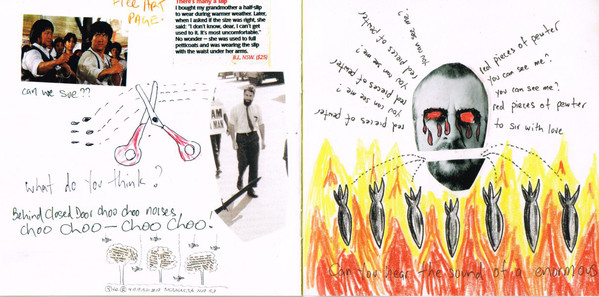 FREE ART
PAGE.
There's many a slip
I bought my grandmother a half-slip
to wear during warmer weather. Later,
when I asked if the size was right, she
said: "I don't know, dear, I can't get
used to it. It's most uncomfortable."
No wonder — she was used to full
petticoats and was wearing the slip
with the waist under her arms.
B.J., NSW. ($25)
can we see??
what do you think?
Behind Closed Door choo choo noises
CHOO CHOO — CHOO CHOO.
red pieces of pewter
you can see me?
you can see me?
red pieces of pewter
you can see me?
red pieces of pewter
you can see me?
red pieces of pewter
you can see me?
you can see me?
red pieces of pewter
to sir with love
Can you hear the sound of a enormous